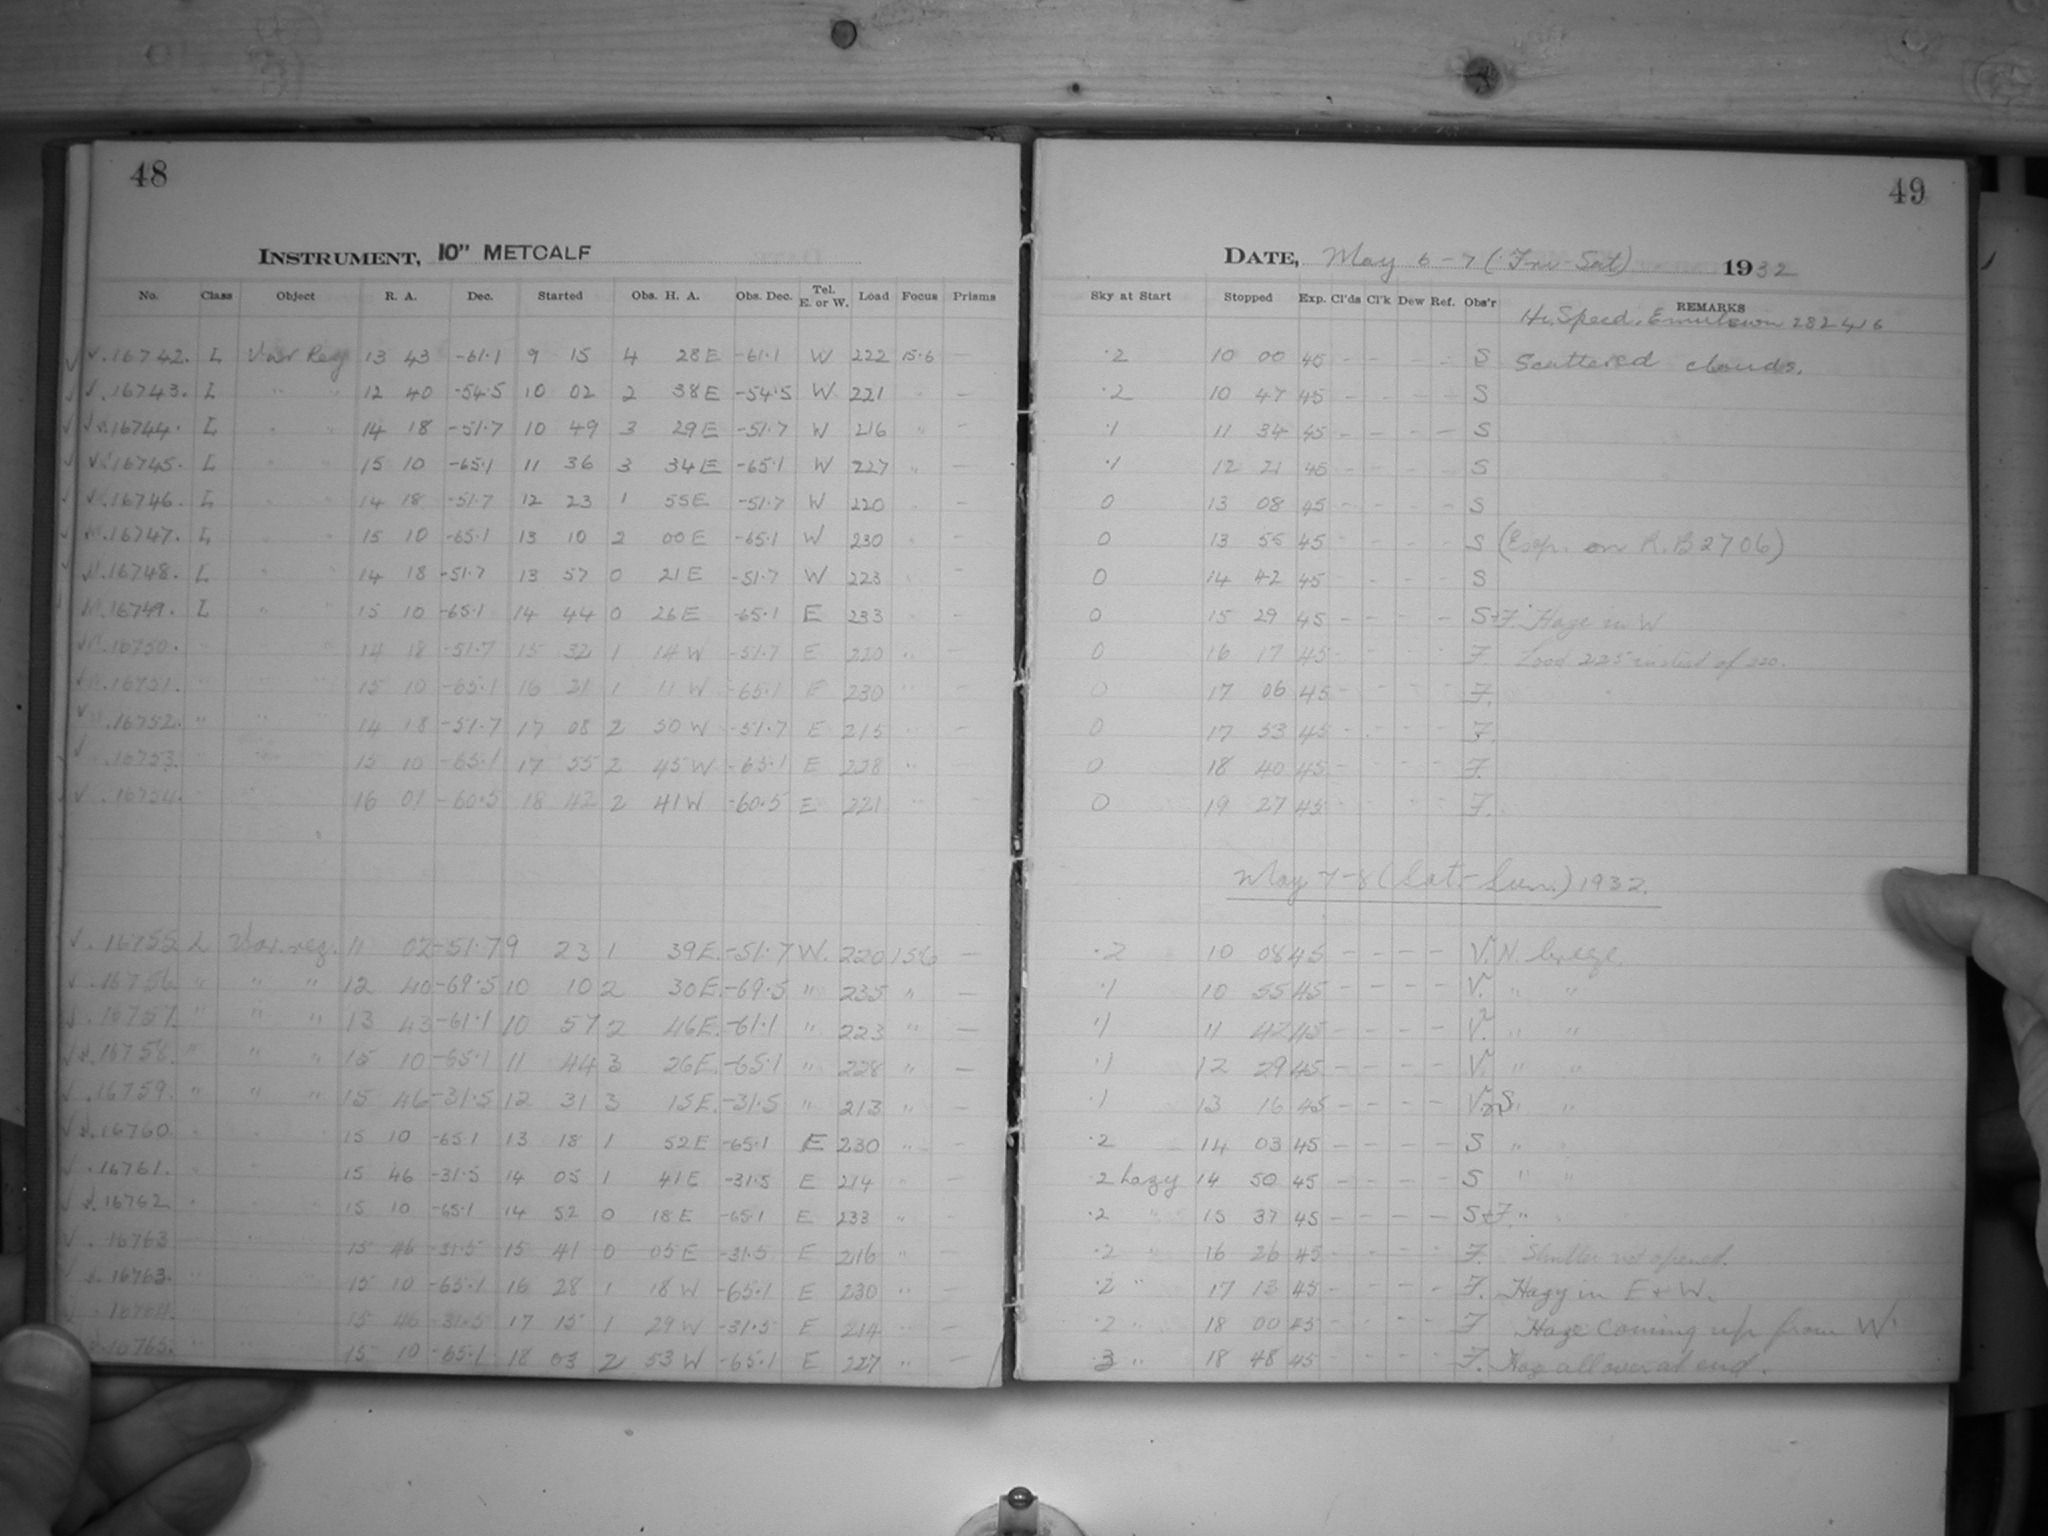 48
INSTRUMENT, 10" METCALF
No. Class Object R. A. Dec. Started Obs. H. A. Obs. Dec. Tel. E. or W. Load Focus Prisms
16742. L Var Reg 13 43 -61.1 9 15 4 28E -61.1 W 222 15.6 —
16743. L " " 12 40 -54.5 10 02 2 38E -54.5 W 221 " —
16744. L " " 14 18 -51.7 10 49 3 29E -51.7 W 216 " —
16745. L " " 15 10 -65.1 11 36 3 34E -65.1 W 227 " —
16746. L " " 14 18 -51.7 12 23 1 55E -51.7 W 220 " —
16747. L " " 15 10 -65.1 13 10 2 00E -65.1 W 230 " —
16748. L " " 14 18 -51.7 13 57 0 21E -51.7 W 223 " —
16749. L " " 15 10 -65.1 14 44 0 26E -65.1 E 233 " —
16750. " " " 14 18 -51.7 15 32 1 14W -51.7 E 220 " —
16751. " " " 15 10 -65.1 16 21 1 11W -65.1 E 230 " —
16752. " " " 14 18 -51.7 17 08 2 50W -51.7 E 215 " —
16753. " " 15 10 -65.1 17 55 2 45W -65.1 E 228 " —
16754. " " 16 01 -60.5 18 42 2 41W -60.5 E 221 " —
16755 L Var. reg. 11 02 -51.7 9 23 1 39E. -51.7 W. 220 156 —
16756 " " " 12 40 -69.5 10 10 2 30E. -69.5 " 235 " —
16757. " " " 13 43 -61.1 10 57 2 46E. -61.1 " 223 " —
16758. " " " 15 10 -65.1 11 44 3 26E. -65.1 " 228 " —
16759. " " " 15 46 -31.5 12 31 3 15E. -31.5 " 213 " —
16760 " " 15 10 -65.1 13 18 1 52E -65.1 E 230 " —
16761. " " 15 46 -31.5 14 05 1 41E -31.5 E 214 " —
16762 " " 15 10 -65.1 14 52 0 18E -65.1 E 233 " —
16763 " " 15 46 -31.5 15 41 0 05E -31.5 E 216 " —
16763. " " 15 10 -65.1 16 28 1 18W -65.1 E 230 " —
16764. " " 15 46 -31.5 17 15 1 29W -31.5 E 214 " —
16765. " " 15 10 -65.1 18 03 2 53W -65.1 E 227 " —
49
DATE, May 6-7 (Fri-Sat) 1932
Sky at Start Stopped Exp. Cl'ds Cl'k Dew Ref. Obs'r REMARKS
Hi. Speed. Emulsion 282416
.2 10 00 45 - - - - S Scattered clouds.
.2 10 47 45 - - - - S
.1 11 34 45 - - - - S
.1 12 21 45 - - - - S
0 13 08 45 - - - - S
0 13 55 45 - - - - S (Exp. on R.B 2706)
0 14 42 45 - - - - S
0 15 29 45 - - - - S+F. Haze in W
0 16 17 45 - - - - F. Load 225 instead of 220.
0 17 06 45 - - - - F.
0 17 53 45 - - - - F.
0 18 40 45 - - - - F.
0 19 27 45 - - - - F.
May 7-8 (Sat.-Sun.) 1932.
.2 10 08 45 - - - - V. N. breeze.
.1 10 55 45 - - - - V. " "
.1 11 42 45 - - - - V. " "
.1 12 29 45 - - - - V. " "
.1 13 16 45 - - - - V S. "
.2 14 03 45 - - - - S " "
.2 hazy 14 50 45 - - - - S " "
.2 " 15 37 45 - - - - S+F. "
.2 " 16 26 45 - - - - F. Shutter not opened.
.2 " 17 13 45 - - - - F. Hazy in E + W.
.2 " 18 00 45 - - - - F Haze coming up from W.
.3 " 18 48 45 - - - - F. Haze all over at end.